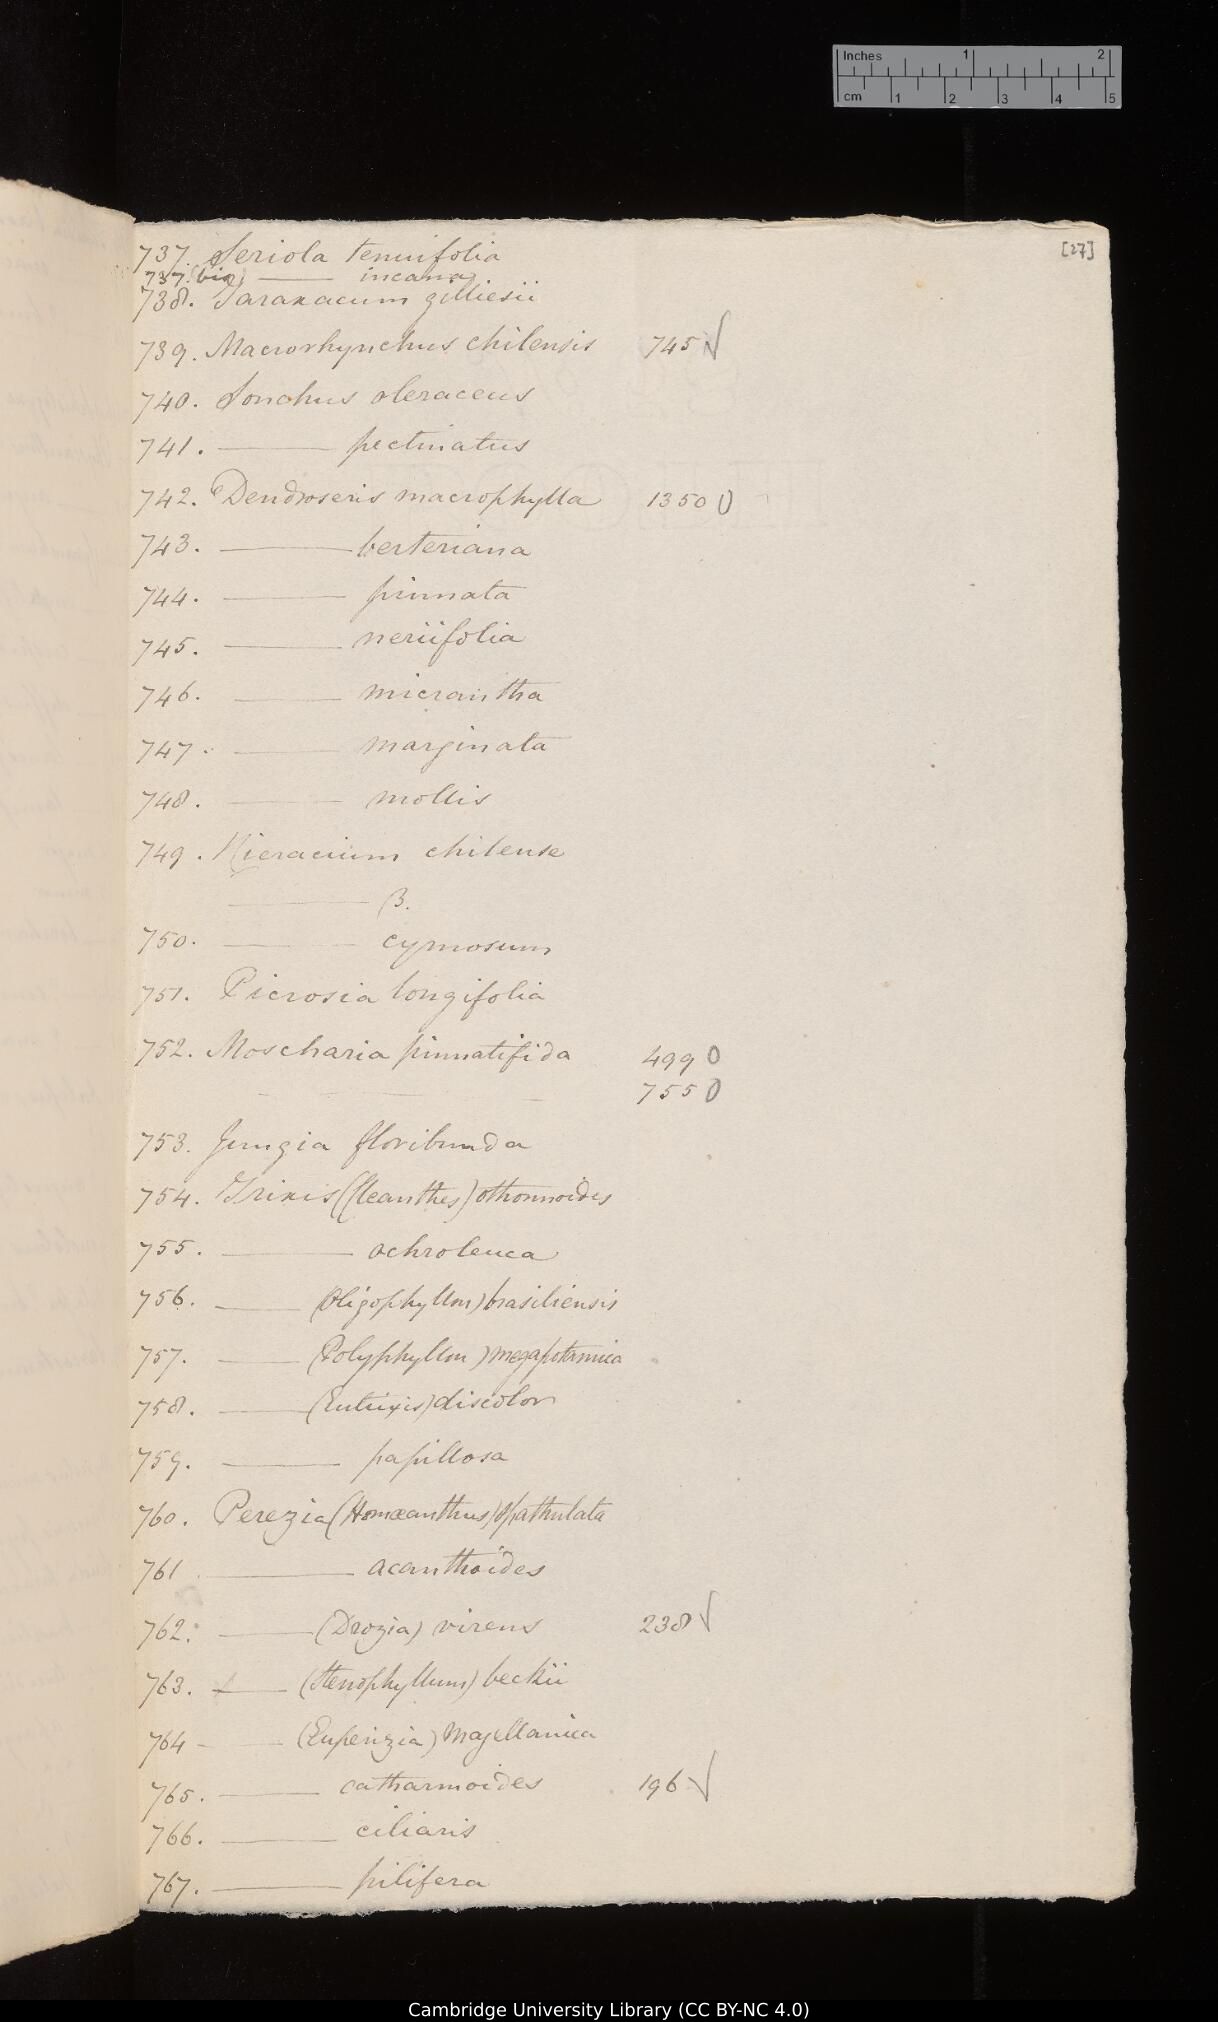 Inches 1 2
cm 1 2 3 4 5
[27]
737. Seriola tenuifolia
737.(bis) —— incana
738. Taraxacum gilliesii
739. Macrorhynchus chilensis 745 √
740. Sonchus oleraceus
741. —— pectinatus
742. Dendroseris macrophylla 1350 0
743. —— berteriana
744. —— pinnata
745. —— neriifolia
746. —— micrantha
747. —— marginata
748. —— mollis
749. Hieracium chilense
—— β.
750. —— cymosum
751. Picrosia longifolia
752. Moscharia pinnatifida 499 0
755 0
753. Jungia floribunda
754. Trixis (Cleanthes) othonnoides
755. —— ochroleuca
756. —— (Oligophyllon) brasiliensis
757. —— (Polyphyllon) megapotamica
758. —— (Eutrixis) discolor
759. —— papillosa
760. Perezia (Homœanthus) spathulata
761 —— acanthoides
762. —— (Drozia) virens 238 √
763. —— (Stenophyllum) beckii
764 - —— (Euperezia) Magellanica
765. —— catharmoides 196 √
766. —— ciliaris
767. —— pilifera
Cambridge University Library (CC BY-NC 4.0)